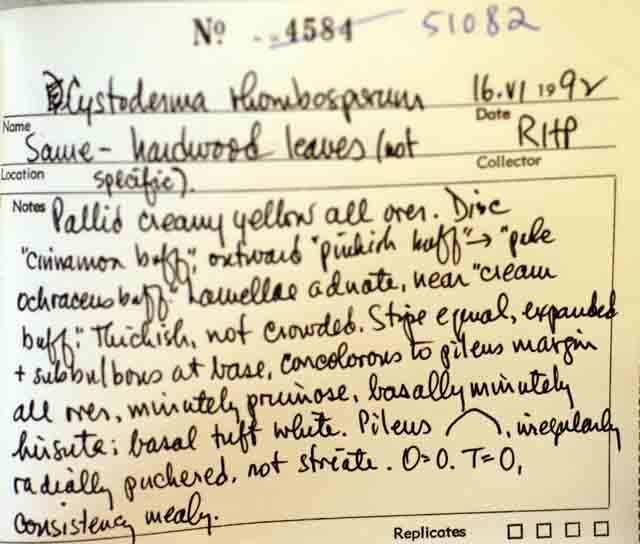 No 4584 51082
Cystoderma rhombosporum 16.VI 1992
Name Date
Same - hardwood leaves (not RHP
Location Collector
specific).
Notes Pallid creamy yellow all over. Disc
"cinnamon buff", outward "pinkish buff" → "pale
ochraceus buff" Lamellae adnate, near "cream
buff". Thickish, not crowded. Stipe equal, expanded
+ subbulbous at base, concolorous to pileus margin
all over, minutely pruinose, basally minutely
hirsute; basal tuft white. Pileus , irregularly
radially puckered, not striate. O=0. T=0,
consistency mealy.
Replicates